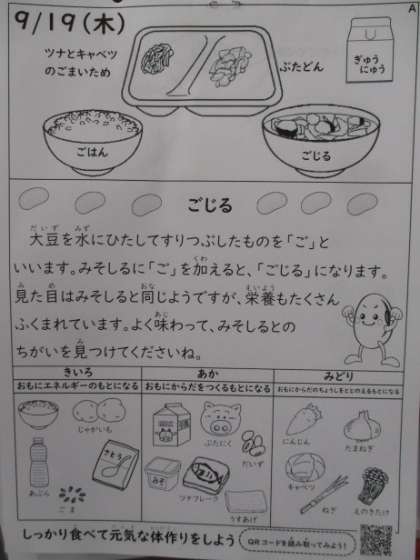 A
9/19(木)
ツナとキャベツ
のごまいため
ぶたどん
ぎゅう
にゅう
ごはん
ごじる
ごじる
大豆を水にひたしてすりつぶしたものを「ご」と
いいます。みそしるに「ご」を加えると、「ごじる」になります。
見た目はみそしると同じようですが、栄養もたくさん
ふくまれています。よく味わって、みそしるとの
ちがいを見つけてくださいね。
きいろ
おもにエネルギーのもとになる
じゃがいも
あぶら
さとう
ごま
あか
おもにからだをつくるもとになる
ぶたにく
だいず
みそ
ツナフレーク
うすあげ
みどり
おもにからだのちょうしをととのえるもとになる
にんじん
たまねぎ
キャベツ
ねぎ
えのきたけ
しっかり食べて元気な体作りをしよう
QRコードを読み取ってみよう!